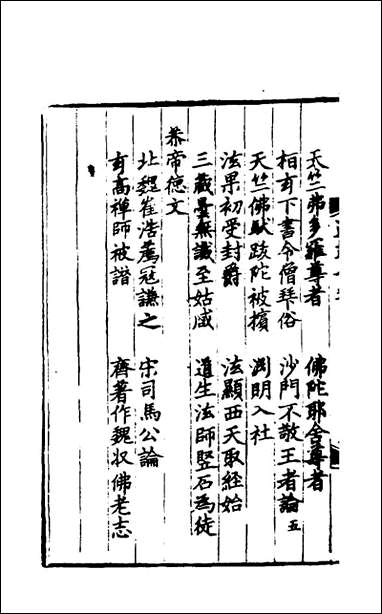 天竺弗多羅尊者 佛陀耶舍尊者
桓玄下書令僧拜俗 沙門不敬王者論五
天竺佛馱跋陀被擯 渊明入社
法果初受封爵 法顯西天取经始
三藏曇無讖至姑臧 道生法師竪石為徒
恭帝德文
北魏崔浩薦寇謙之 宋司馬公論
玄高禅師被譖 齊著作魏収佛老志